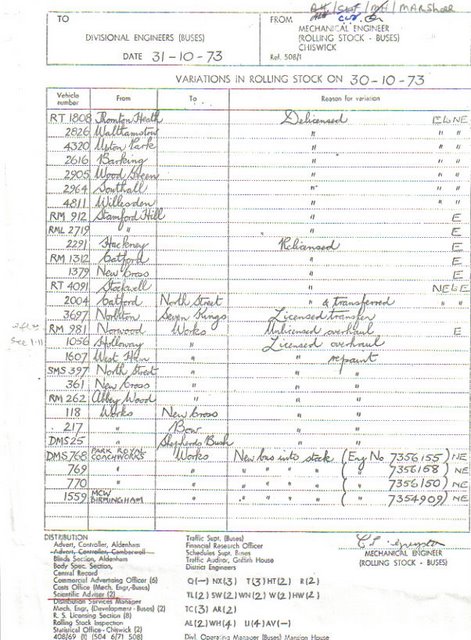 MARSHALL
TO
DIVISIONAL ENGINEERS (BUSES)
DATE 31-10-73
FROM
MECHANICAL ENGINEER
(ROLLING STOCK - BUSES)
CHISWICK
Ref. 508/1
VARIATIONS IN ROLLING STOCK ON 30-10-73
Vehicle number From To Reason for variation
RT 1808 Thornton Heath Delicensed ELNE
2826 Walthamstow " " "
4320 Upton Park " " "
2616 Barking " " "
2905 Wood Green " " "
2964 Southall " " "
4811 Willesden " " "
RM 912 Stamford Hill " E
RML 2719 " " E
2291 Hackney Relicensed E
RM 1312 Catford " E
1379 New Cross " E
RT 4091 Stockwell " NELE
2004 Catford North Street " & transferred " "
3697 Norbiton Seven Kings Licensed transfer
RM 981 Norwood Works Unlicensed overhaul E
1056 Holloway " Licensed overhaul
1607 West Ham " " repaint
SMS 397 North Street " " "
361 New Cross " " "
RM 262 Abbey Wood " " "
118 Works New Cross " "
217 " Bow " "
DMS 25 " Shepherds Bush " "
DMS 768 PARK ROYAL COACHWORKS Works New bus into stock (Eng No 7356155) NE
769 " " " " " " ( " 7356158) NE
770 " " " " " " ( " 7356150) NE
1559 MCW BIRMINGHAM " " " " " ( " 7354909) NE
See 1-11
DISTRIBUTION
Advert. Controller, Aldenham
Advert. Controller, Camberwell
Blinds Section, Aldenham
Body Spec. Section,
Central Record
Commercial Advertising Officer (6)
Costs Office (Mech. Engr-Buses)
Scientific Adviser (2)
Distribution Services Manager
Mech. Engr, (Development - Buses) (2)
R. S. Licensing Section (8)
Rolling Stock Inspection
Statistical Office - Chiswick (2)
408/69 (1) 504 6/71 508
Traffic Supt. (Buses)
Financial Research Officer
Schedules Supt. Buses
Traffic Auditor, Griffith House
District Engineers
Q(-) NX(3) T(3) HT(2) R(2)
TL(2) SW(2) WN(2) W(2) HW(2)
TC(3) AR(2)
AL(2) WH(4) U(4) AV(-)
Divl. Operating Manager (Buses) Mansion House
MECHANICAL ENGINEER
(ROLLING STOCK - BUSES)